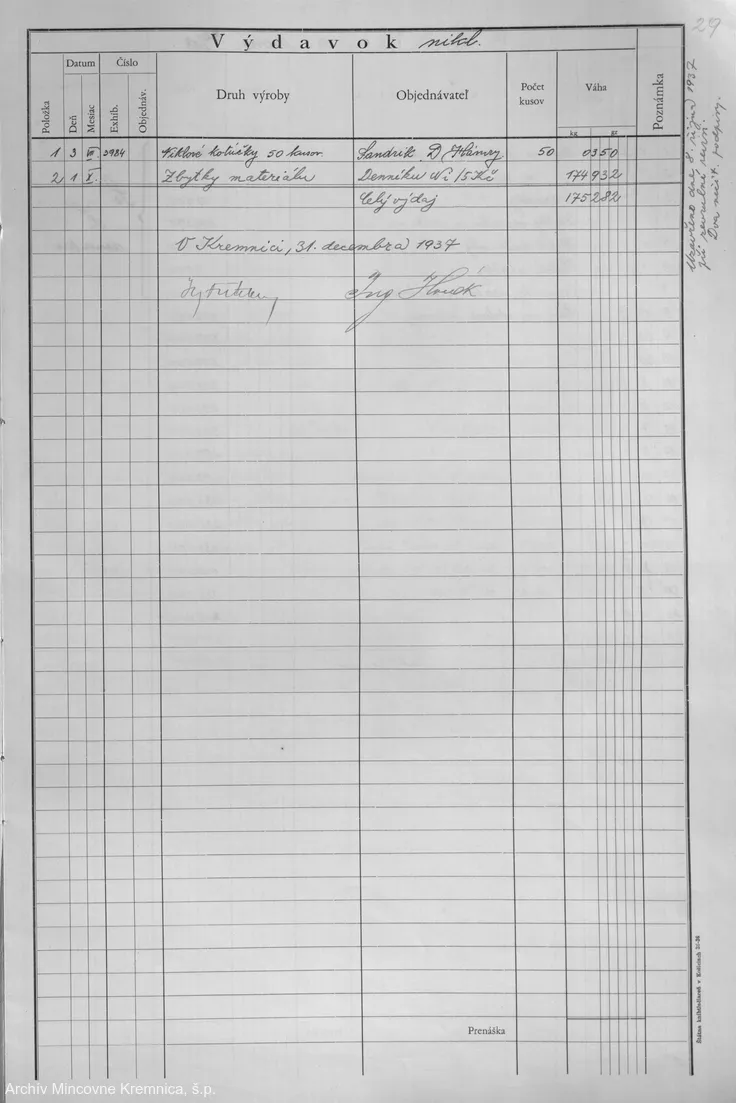 29
Výdavok nikl.
Položka
Datum
Deň
Mesiac
Číslo
Exhib.
Objednáv.
Druh výroby
Objednávateľ
Počet kusov
Váha
kg
gr
Poznámka
1 3 3984 Niklové kotúčky 50 kusov Sandrik D. Hámry 50 0350
2 1 X. Zbytky materiálu Denníku Ni 5 Kč 174932
Celý výdaj 175282
V Kremnici, 31. decembra 1937
Ing
Uzavřeno dne 8. října 1937
při
Dva nečit. podpisy.
Prenáška
Archív Mincovne Kremnica, š.p.